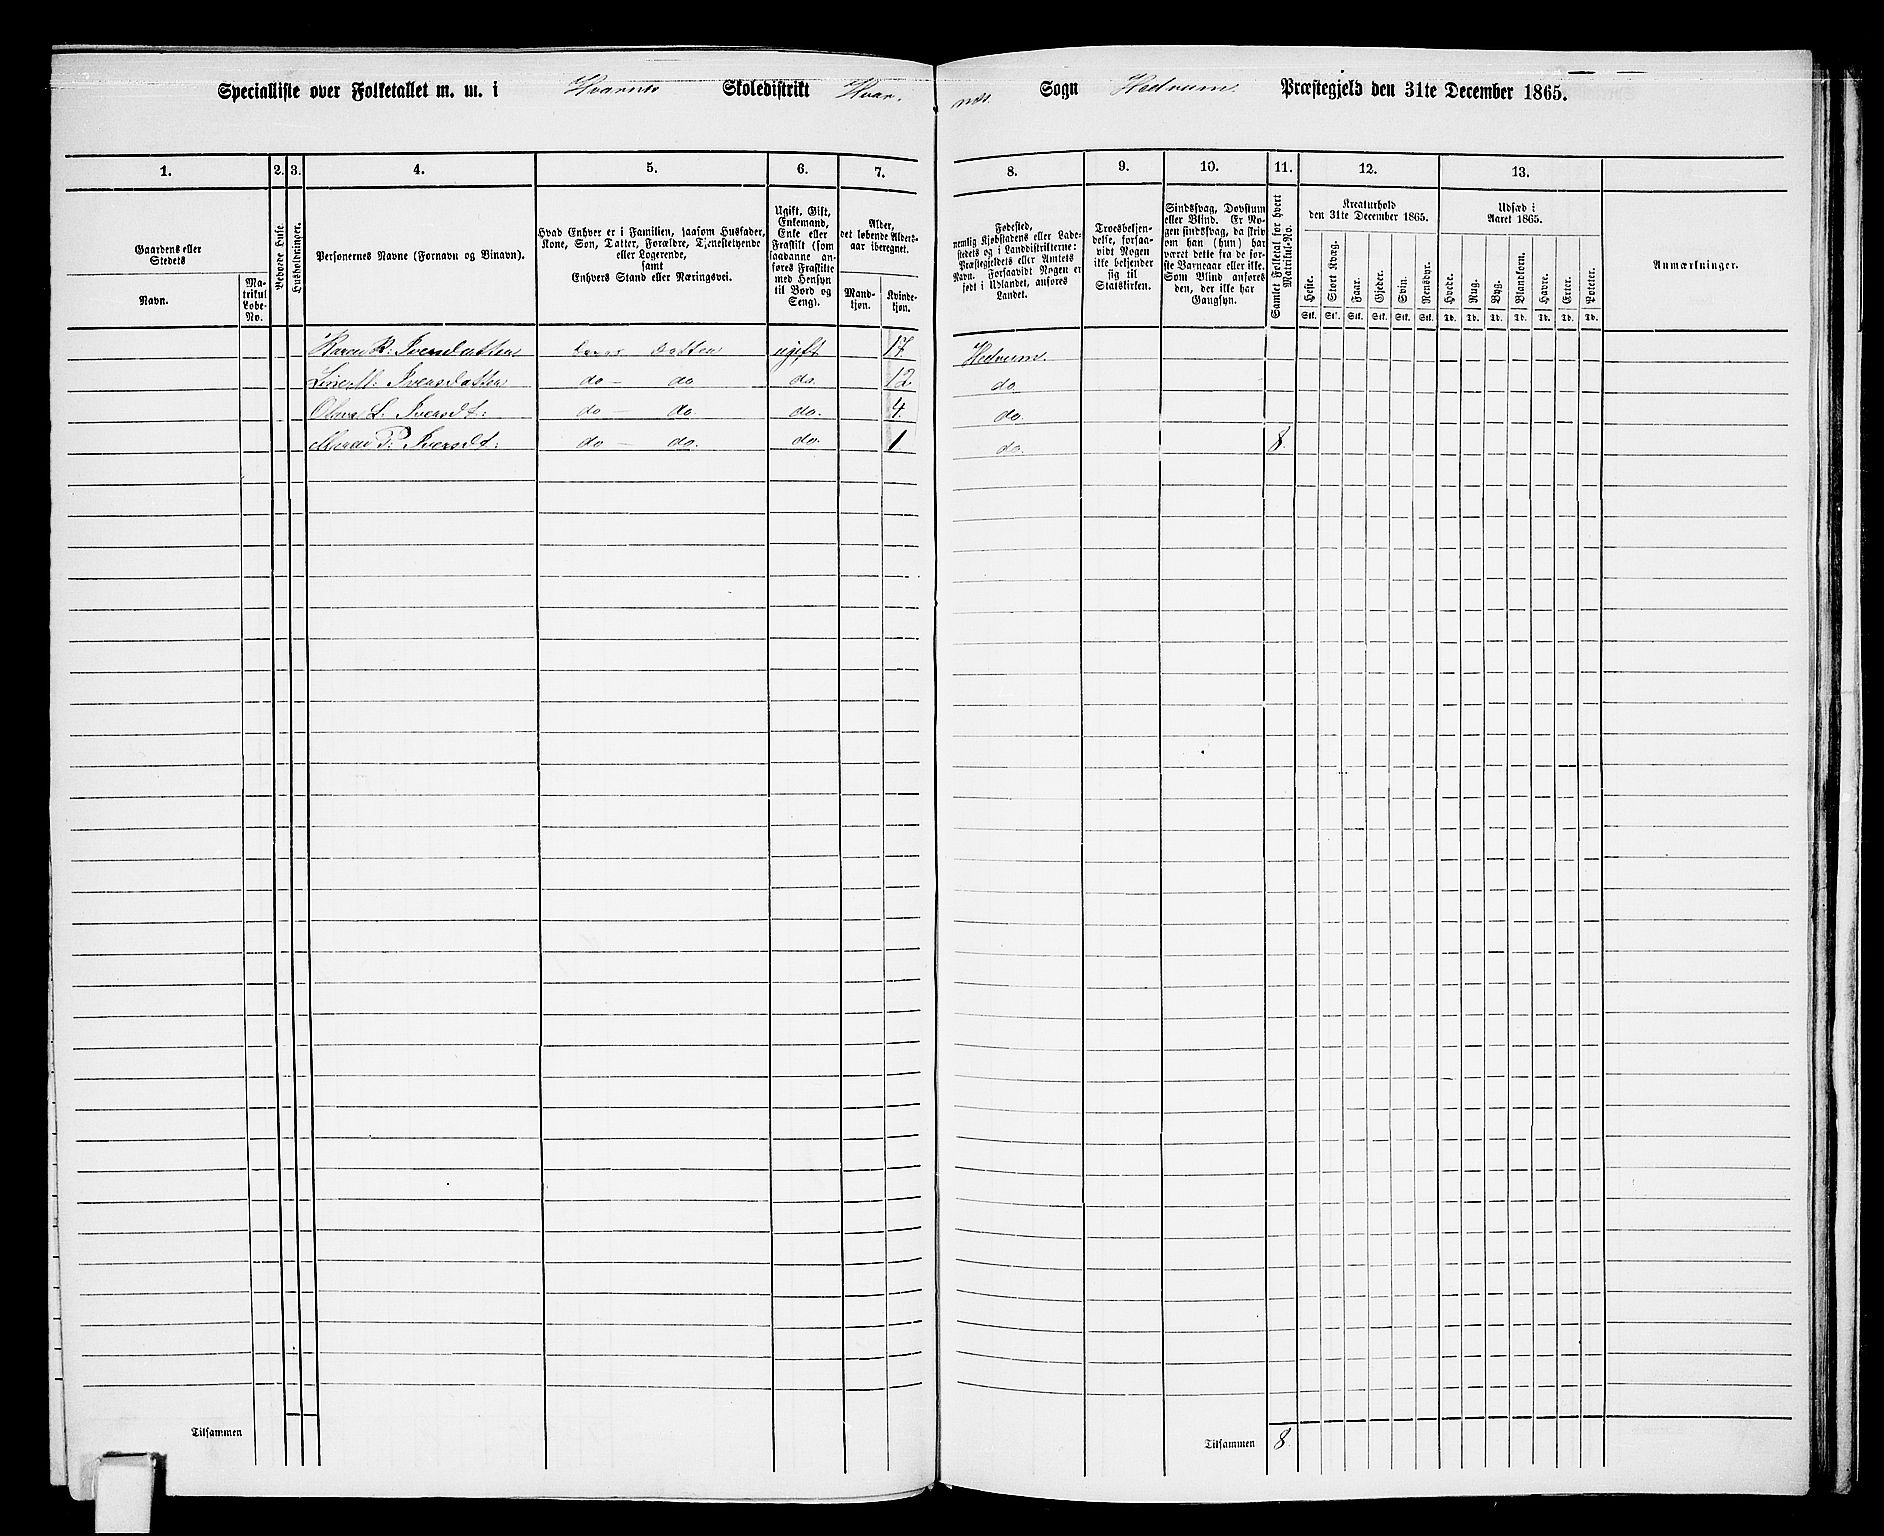 Specialliste over Folketallet m. m. i Hvarnes Skoledistrikt Hvar-
nes Sogn Hedrum Præstegjeld den 31te December 1865.
1. 2. 3. 4. 5. 6. 7. 8. 9. 10. 11. 12. 13.
Gaardens eller
Stedets
Navn.
Ma-
trikul
Løbe-
No.
Beboede Huse.
Husholdninger.
Personernes Navne (Fornavn og Binavn).
Hvad Enhver er i Familien, saasom Husfader,
Kone, Søn, Datter, Forældre, Tjenestetyende
eller Logerende,
samt
Enhvers Stand eller Næringsvei.
Ugift, Gift,
Enkemand,
Enke eller
Fraskilt (som
saadanne an-
føres Fraskilte
med Hensyn
til Bord og
Seng).
Alder,
det løbende Alders-
aar iberegnet.
Mand-
kjøn.
Kvinde-
kjøn.
Fødested,
nemlig Kjøbstadens eller Lade-
stedets og i Landdistrikterne:
Præstegjeldets eller Amtets
Navn. Forsaavidt Nogen er
født i Udlandet, anføres
Landet.
Troesbekjen-
delse, forsaa-
vidt Nogen
ikke bekjender
sig til
Statskirken.
Sindssvag, Døvstum
eller Blind. Er No-
gen sindssvag, da skriv
om han (hun) har
været dette fra de før-
ste Barneaar eller ikke.
Som Blind anføres
den, der ikke har
Gangsyn.
Samlet Folketal for hvert
Matrikul-No.
Kreaturhold
den 31te December 1865.
Heste. Stort Kvæg. Faar. Gjeder. Svin. Rensdyr.
Stk. Stk. Stk. Stk. Stk. Stk.
Udsæd i
Aaret 1865.
Hvede. Rug. Byg. Blandkorn. Havre. Erter. Poteter.
Td. Td. Td. Td. Td. Td. Td.
Anmærkninger.
Karen R: Iversdatter Datter ugift 17 Hedrum
Iversdatter do — do do. 12 do.
L: Iversdt: do — do do. 4. do.
P: Iversdt: do — do. do. 1 do. 8.
Tilsammen
Tilsammen 8.